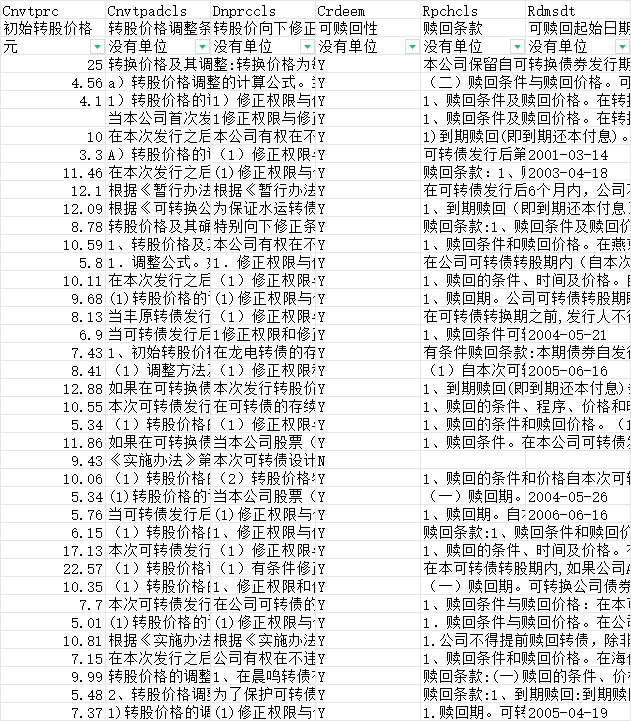 Cnvtprc Cnvtpadcls Dnprccls Crdeem Rpchcls Rdmsdt
初始转股价格 转股价格调整条 转股价向下修正 可赎回性 赎回条款 可赎回起始日期
元 没有单位 没有单位 没有单位 没有单位 没有单位
25 转换价格及其调整:转换价格为 Y 本公司保留自可转换债券发行期
4.56 a) 转股价格调整的计算公式。 Y (二) 赎回条件与赎回价格。可
4.1 1) 转股价格的 1) 修正权限与 Y 1、赎回条件及赎回价格。在转
当本公司首次发 1修正权限与修 Y 1、赎回条件及赎回价格。在转
10 在本次发行之后 本公司有权在不 Y 1)到期赎回(即到期还本付息)。
3.3 A) 转股价格的 (1) 修正权限 Y 可转债发行后第 2001-03-14
11.46 在本次发行之后 (1) 修正权限与 Y 赎回条款：1、 2003-04-18
12.1 根据《暂行办法 根据《暂行办法 Y 在可转债发行后6个月内，公司
12.09 根据《可转换公 为保证水运转债 Y 1、到期赎回（即到期还本付息
8.78 转股价格及其确 特别向下修正条 Y 赎回条款:1、赎回条件及赎回价
10.59 1、转股价格及 本公司有权在不 Y 1、赎回条件和赎回价格。在燕
5.8 1．调整公式。 1．修正权限与 Y 在公司可转债转股期内（自本次
10.11 在本次发行之后 (1) 修正权限与 Y 1、赎回的条件、时间及价格。
9.68 (1)转股价格的 (1) 修正权限与 Y 1、赎回期。公司可转债转股期
8.13 当丰原转债发行 (1) 修正权限与 Y 在可转债转换期之前,发行人不得
6.9 当可转债发行后 1修正权限和修 Y 1、赎回条件可 2004-05-21
7.43 1、初始转股价 在龙电转债的存 Y 有条件赎回条款:本期债券自发行
8.41 (1) 调整方法 (1) 修正权限 Y (1) 自本次可 2005-06-16
12.88 如果在可转换债 本次发行转股价 Y 1、到期赎回(即到期还本付息)
10.55 本次可转债发行 在可转债的存续 Y 1、赎回的条件、程序、价格和时
5.34 (1) 转股价格的 (1) 修正权限与 Y 1、赎回的条件和赎回价格。（1
11.86 如果在可转换债 当本公司股票（ Y 1、赎回条件。在本公司可转债
9.43 《实施办法》第 本次可转债设计 N
10.06 (1) 转股价格 (2) 转股价格 Y 1、赎回的条件和价格自本次可转
5.34 (1)转股价格的 当本公司股票（ Y （一）赎回期。 2004-05-26
5.76 当可转债发行后 (1)修正权限与 Y 1、赎回期。自 2006-06-16
6.15 (1) 转股价格 1、修正权限与 Y 赎回条款:1、赎回条件和赎回价
17.13 本次可转债发行 (1) 修正权限 Y 1、赎回的条件、时间及价格。
22.57 (1) 转股价格 (1) 有条件修 Y 在本可转债转股期内,如果公司A
10.35 (1) 转股价格 1、修正权限和 Y （一）赎回期。可转换公司债券
7.7 本次可转债发行 在公司可转债的 Y 1、赎回条件与赎回价格：在本可
5.01 (1)转股价格的 (1) 修正权限与 Y 1．赎回条件与赎回价格。在公司
10.81 根据《实施办法 根据《实施办法 Y 1.公司不得提前赎回转债，除非
7.15 在本次发行之后 公司有权在不违 Y 1、赎回条件和赎回价格。在海
9.99 转股价格的调整 1、在晨鸣转债 Y 赎回条款:(一)赎回的条件、价
5.48 2、转股价格调 为了保护可转债 Y 赎回条款:1、到期赎回:到期赎
7.37 1)转股价格的调 (1)修正权限与 Y 1.赎回期。可转 2005-04-19